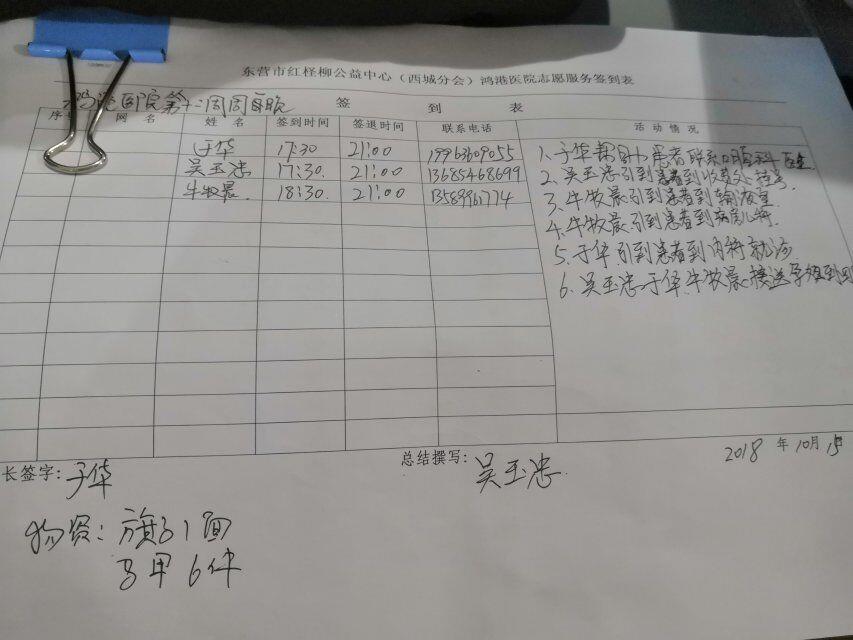 东营市红柽柳公益中心（西城分会）鸿港医院志愿服务签到表
鸿港医院第十二周周
签 到 表
序 网 名 姓 名 签到时间 签退时间 联系电话 活 动 情 况
于华 17:30 21:00 19963609055
吴玉忠 17:30. 21:00 13685468699
牛牧晨 18:30. 21:00 13589961774
1、于华帮助患者联系口腔科医生
2、吴玉忠引到患者到收费处挂号.
3、牛牧晨引到患者到输液室
4、牛牧晨引到患者到病房
5、于华引到患者到内科就诊
6、吴玉忠于华牛牧晨接送孕妇到
长签字: 于华
总结撰写: 吴玉忠.
2018 年 10月 15
物资: 旗子1面
马甲 6件